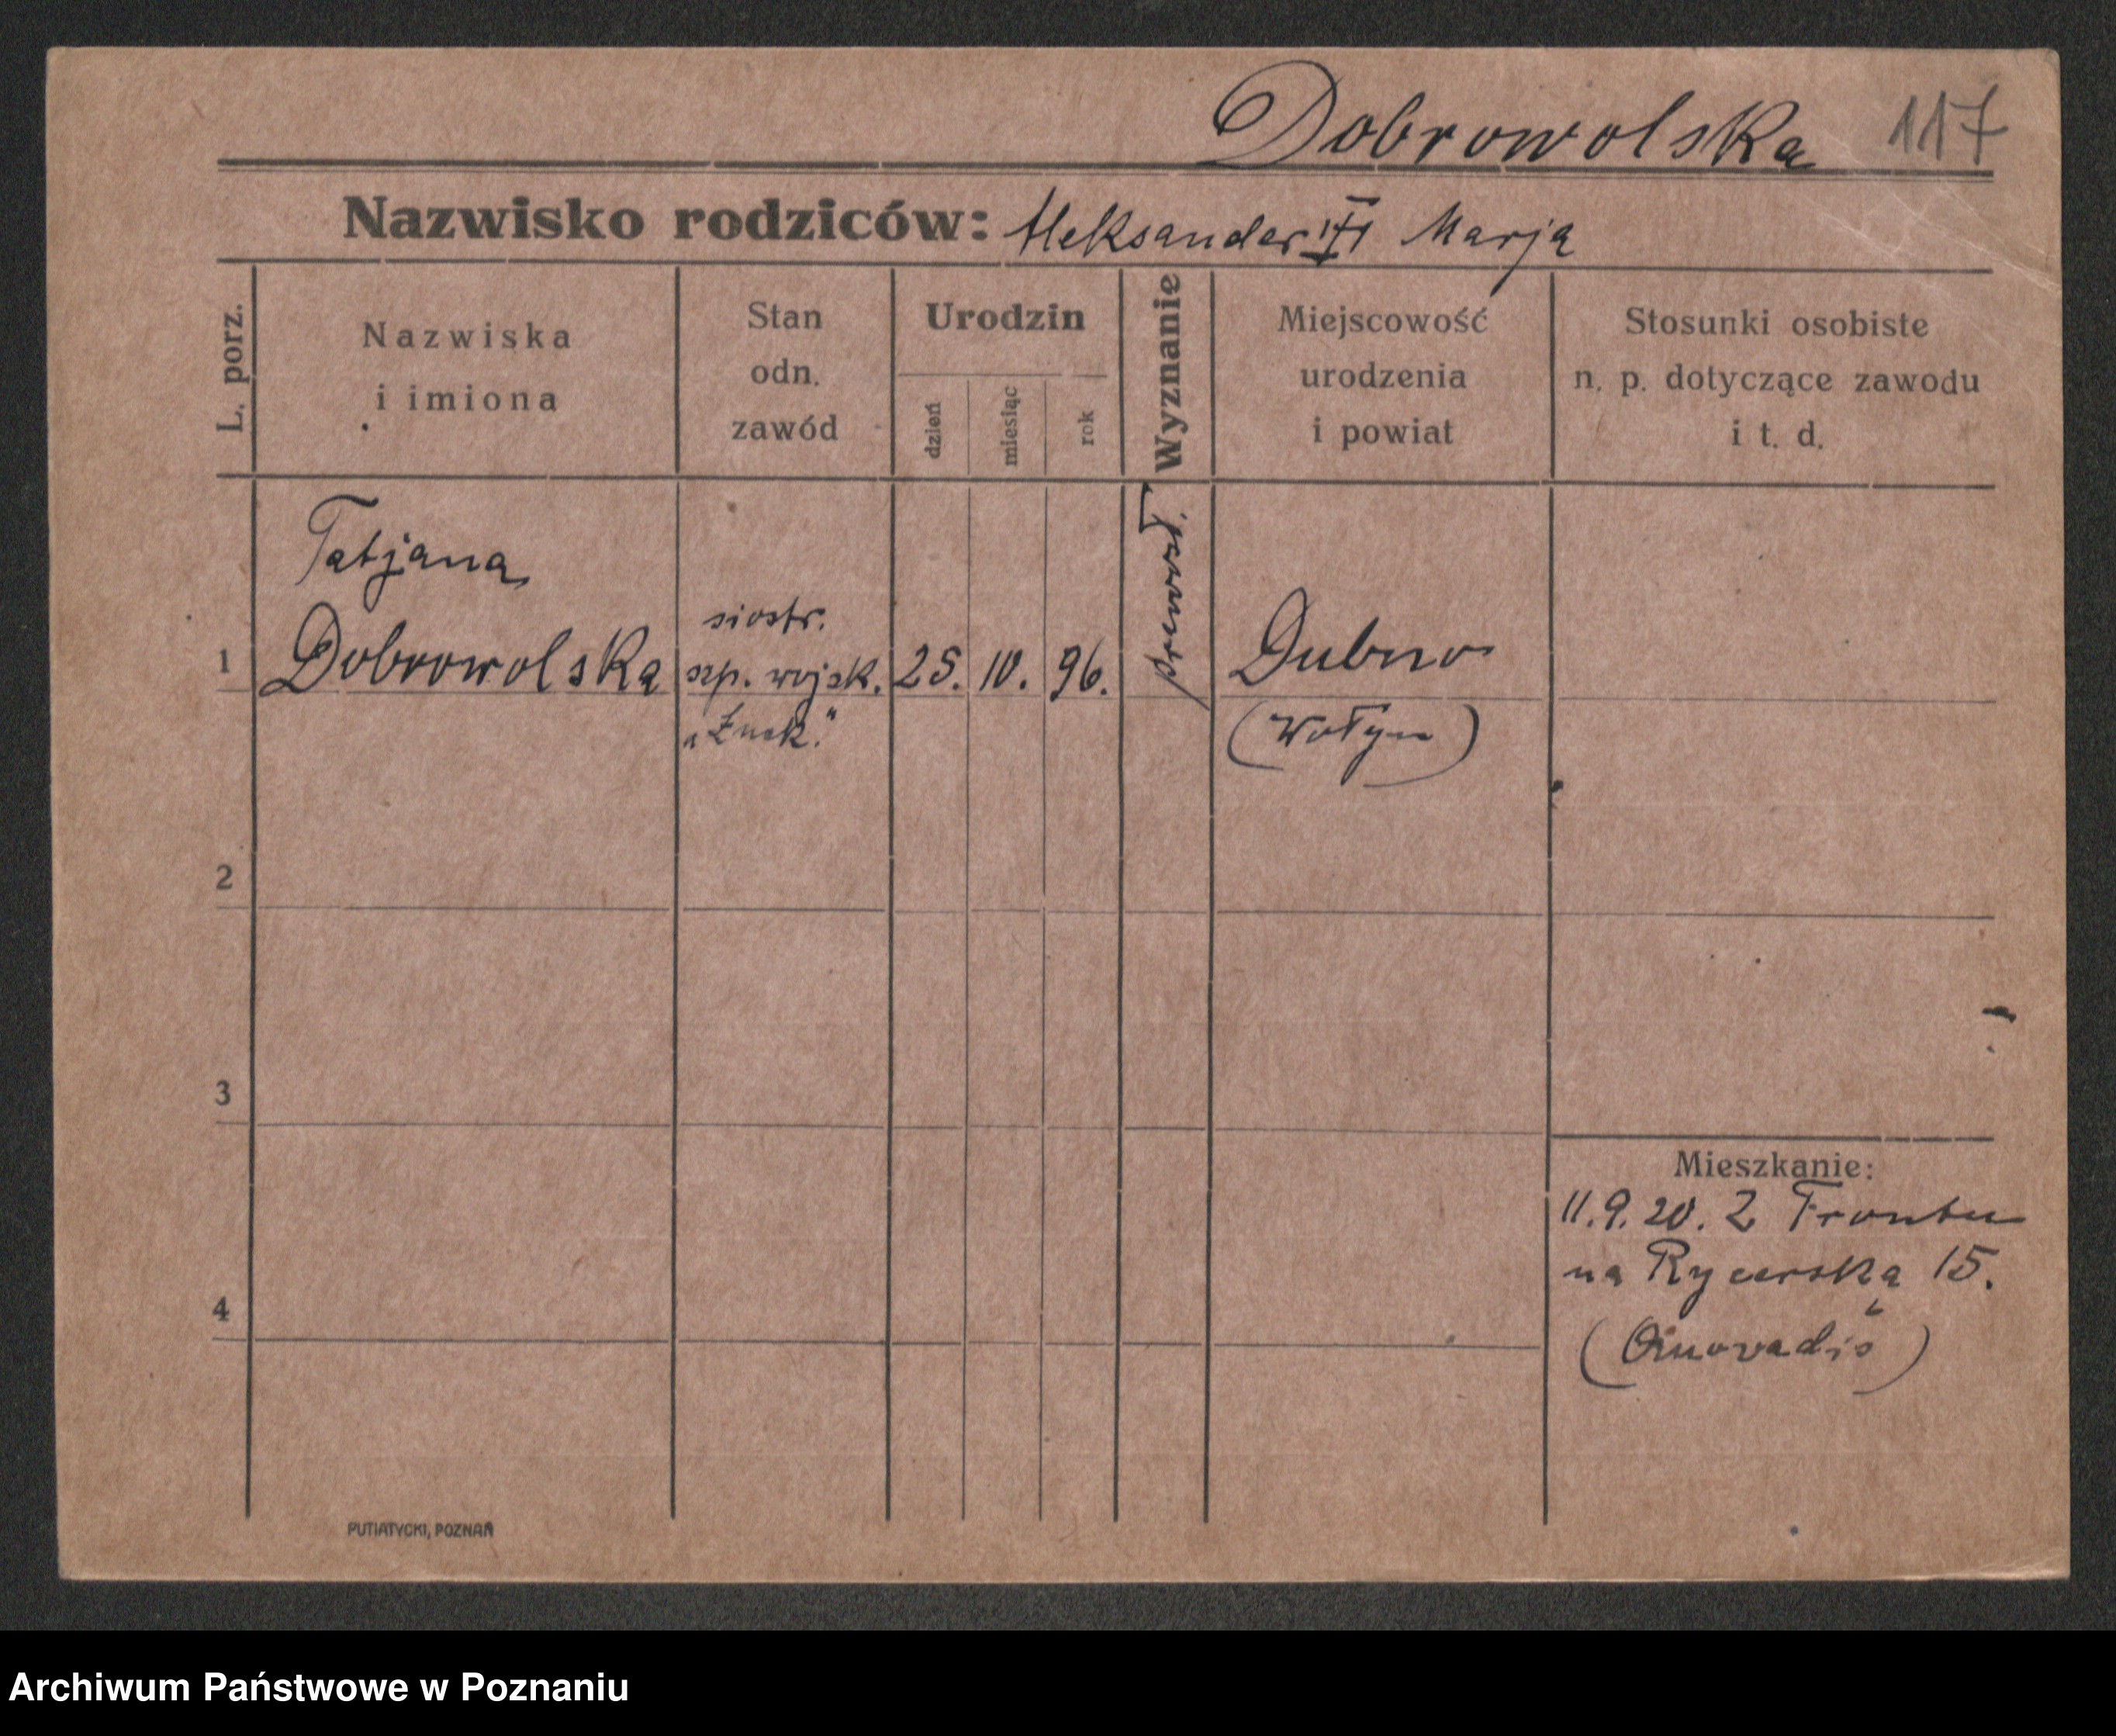 Dobrowolska 117
Nazwisko rodziców: Aleksander Marja
L. porz.
Nazwiska
i imiona
Stan
odn.
zawód
Urodzin
dzień
miesiąc
rok
Wyznanie
Miejscowość
urodzenia
i powiat
Stosunki osobiste
n. p. dotyczące zawodu
i t. d.
1
Tatjana
Dobrowolska
siostr.
szp. wojsk.
25. 10. 96.
Dubno
(Wołyn)
2
3
4
Mieszkanie:
11.9.20. Z Frontu
na Rycerska 15.
PUTIATYCKI, POZNAŃ
Archiwum Państwowe w Poznaniu